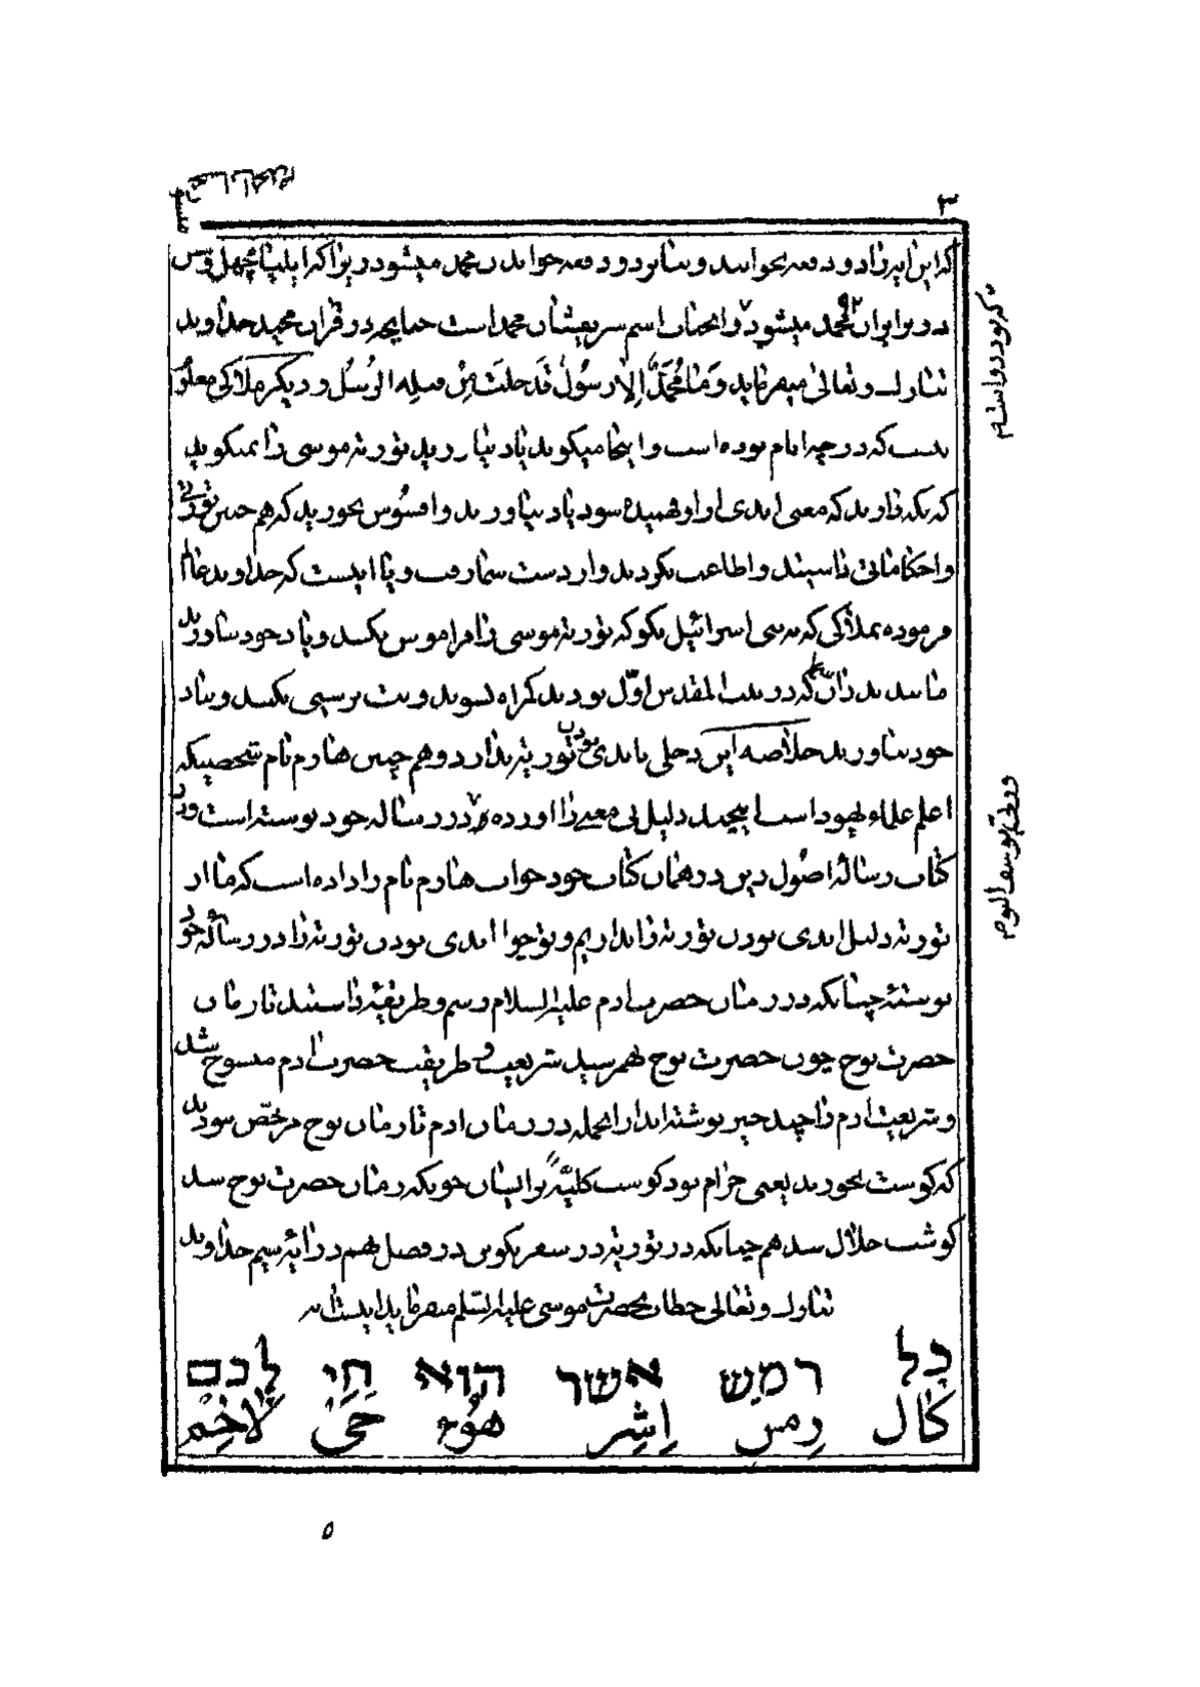 ۳
که این ایه را دو دفعه بخوانند و بنابر دو دفعه خواندن محمد میشود زیرا که ایلیا چهل
و برابر ان محمد میشود ۹۲ و انجناب اسم شریفشان محمد است چنانچه در قران مجید خداوند
تبارک و تعالی میفرماید وَمَا مُحَمَّدٌ اِلّا رَسُولٌ قَدْ خَلَتْ مِنْ قبلِهِ الرُسُل و دیگر ملاکی معلوم
نیست که در چه ایام بوده است و اینجا میگوید یاد بیاورید توریة موسی را نمیگوید
که نگه دارید که معنی ابدی از او فهمیده شود یاد بیاورید و افسوس بخورید که هم چنین توریة
و احکاماتی داشتید و اطاعت نکردید و از دست شما رفت و یا اینست که خداوند عالم
فرموده بملاکی که به بنی اسرائیل بگو که توریة موسی را فراموش نکنند و یاد خود بیاورید
مانند پدران که در بیت المقدس اوّل بودند گمراه نشوند و بت پرستی نکنند و بیاد
خود بیاورند خلاصه این دخلی بابدی بودن توریة ندارد و هم چنین هارم نام شخصیکه
اعلم علماء یهود است پنجده دلیل بی معنی را اورده و در رساله خود نوشته است و در
کتاب رسالهٔ اصُول دین در همان کتاب خود جواب هارم نام را داده است که ما از
توریة دلیل ابدی بودن توریة را نداریم و تو چرا ابدی بودن توریة را در رسالهٔ خود
نوشتهٔ چنانکه در زمان حضرت ادم علیه السلام رسم و طریقهٔ داشتند تا زمان
حضرت نوح چون حضرت نوح بهم رسید شریعت و طریقت حضرت ادم منسوخ شد
و شریعت ادم را چند چیز نوشته اند از انجمله در زمان ادم تا زمان نوح مرخّص نبودند
که گوشت بخورند یعنی حرام بود گوشت کلیّةً بر ایشان چونکه زمان حضرت نوح شد
گوشت حلال شد هم چنانکه در توریة در سفر بکوین در فصل نهم در ایهٔ سیم خداوند
تبارک و تعالی خطاب بحضرت موسی علیه السّلم میفرماید اینست ایه
כל רמש אשר הוא חי לכם
كَال رِمس اِشِر هُوء حَی لاخِم
که بود دو است
وردّی یوسف الیوم
۵